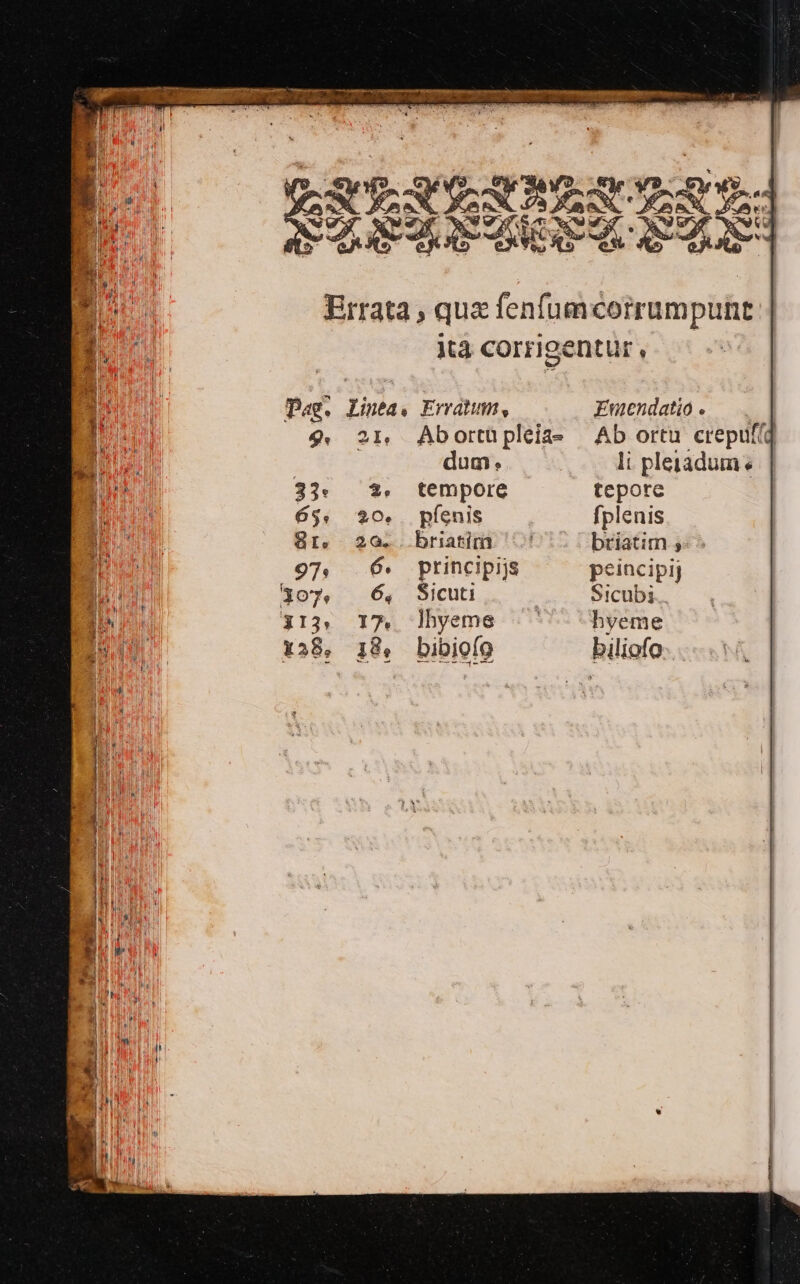 Errata, quæ ſenſum corrumpunt
ità corrigentur.
Pag. Linea. Erratum. Emendatio.
9. 21. Ab ortu pleia- Ab ortu crepuſc
dum. li pleiadum.
33. 2. tempore tepore
65. 20. pſenis ſplenis
81. 20. briatim btiatim,
97. 6. principijs peincipij
107. 6. Sicuti Sicubi
113. 17. lhyeme hyeme
128. 18. bibioſo bilioſo